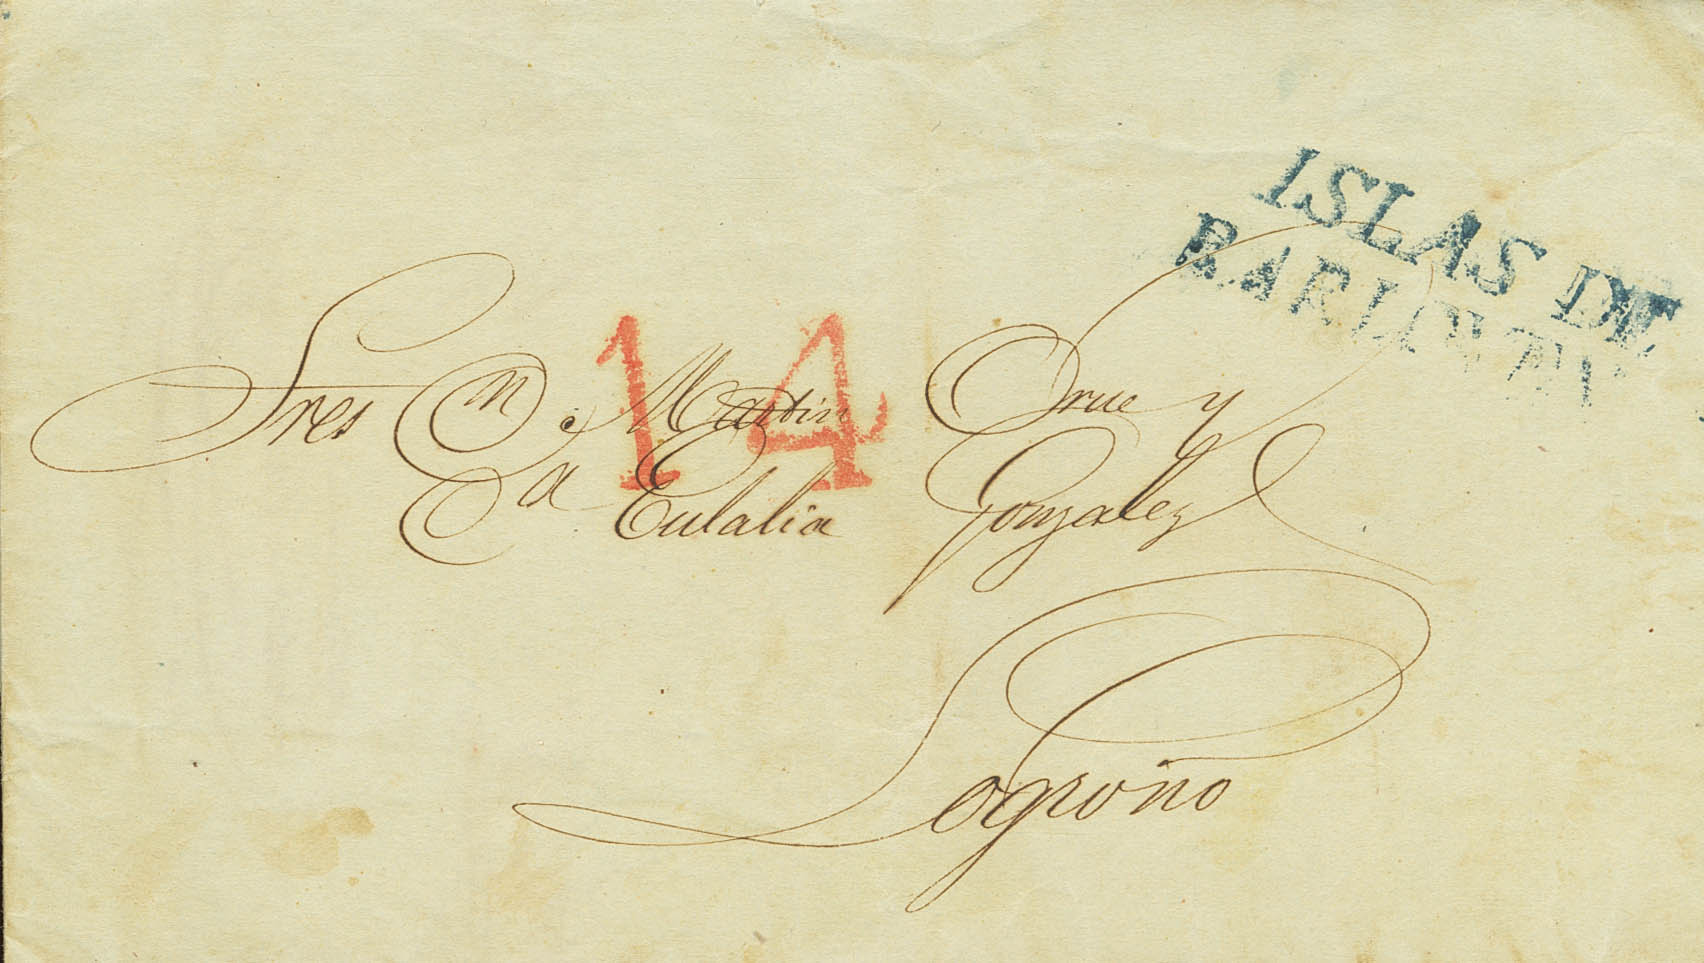 ISLAS DE
14
Sres Dn. Martin Orue y
Da Eulalia Gonzalez
Logroño